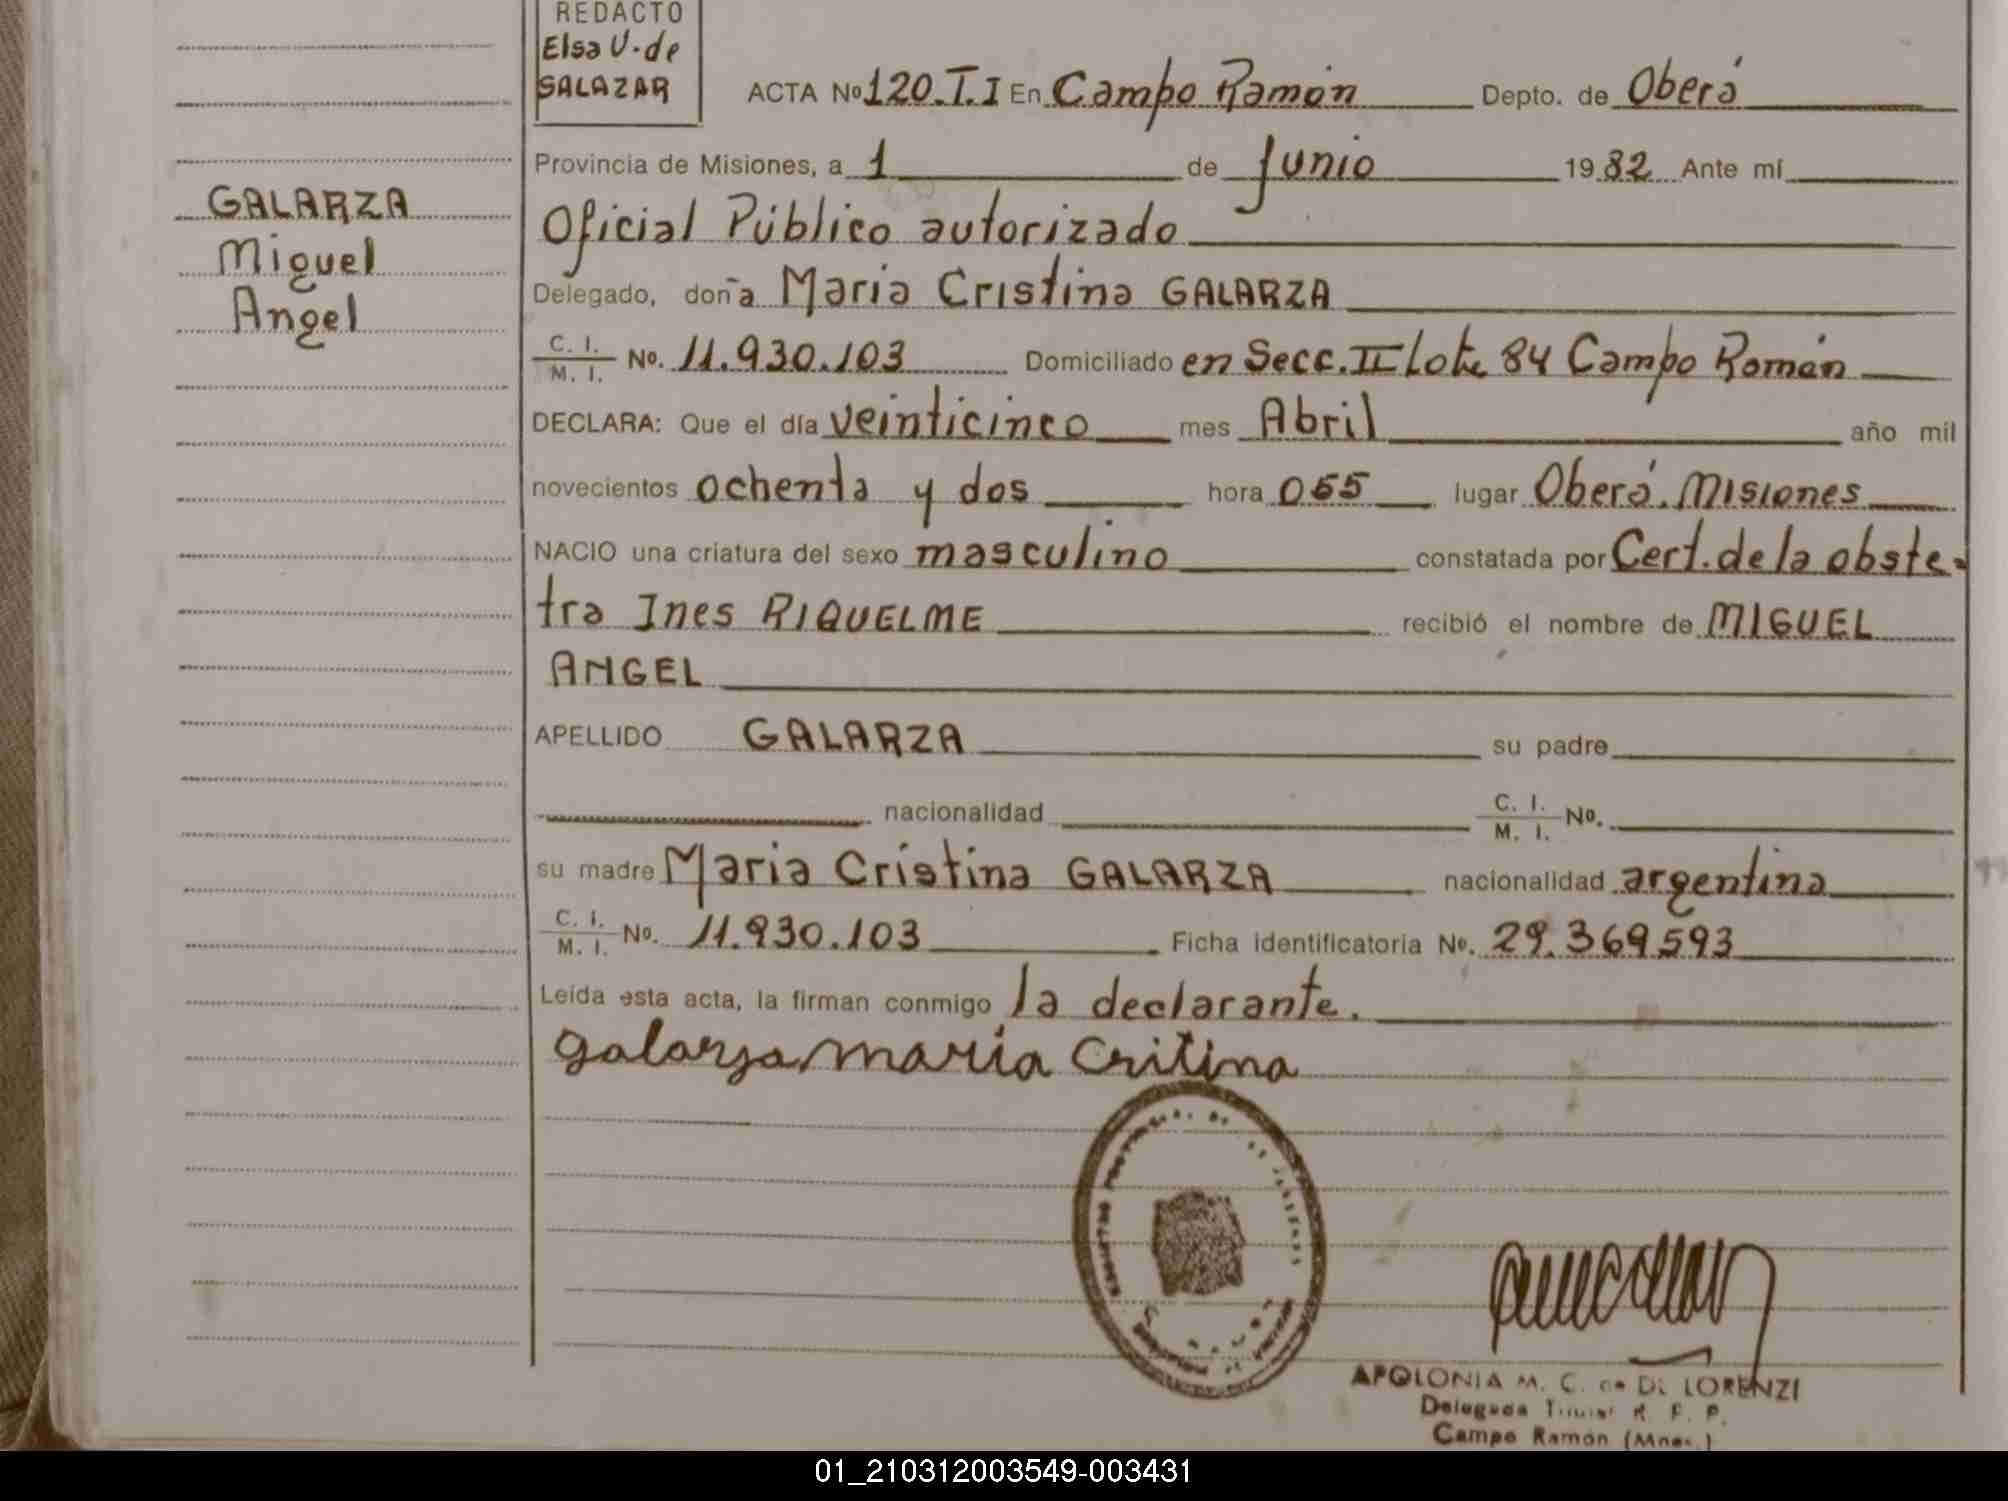 REDACTO
Elsa U. de
SALAZAR
GALARZA
Miguel
Angel
ACTA Nº 120.T.I En Campo Ramón Depto. de Oberá
Provincia de Misiones, a 1 de Junio 1982 Ante mí
Oficial Público autorizado
Delegado, doña Maria Cristina GALARZA
C. I. / M. I. Nº. 11.930.103 Domiciliado en Secc. II Lote 84 Campo Ramón
DECLARA: Que el día veinticinco mes Abril año mil
novecientos ochenta y dos hora 055 lugar Oberá. Misiones
NACIO una criatura del sexo masculino constatada por Cert. de la obste-
tra Ines RIQUELME recibió el nombre de MIGUEL
ANGEL
APELLIDO GALARZA su padre
nacionalidad C. I. / M. I. Nº.
su madre Maria Cristina GALARZA nacionalidad argentina
C. I. / M. I. Nº. 11.930.103 Ficha identificatoria Nº. 29.369593
Leída esta acta, la firman conmigo la declarante.
galarza maria Critina
APOLONIA M. C. de DI LORENZI
Delegada Titular R. P. P.
Campo Ramón (Mnes.)
01_210312003549-003431